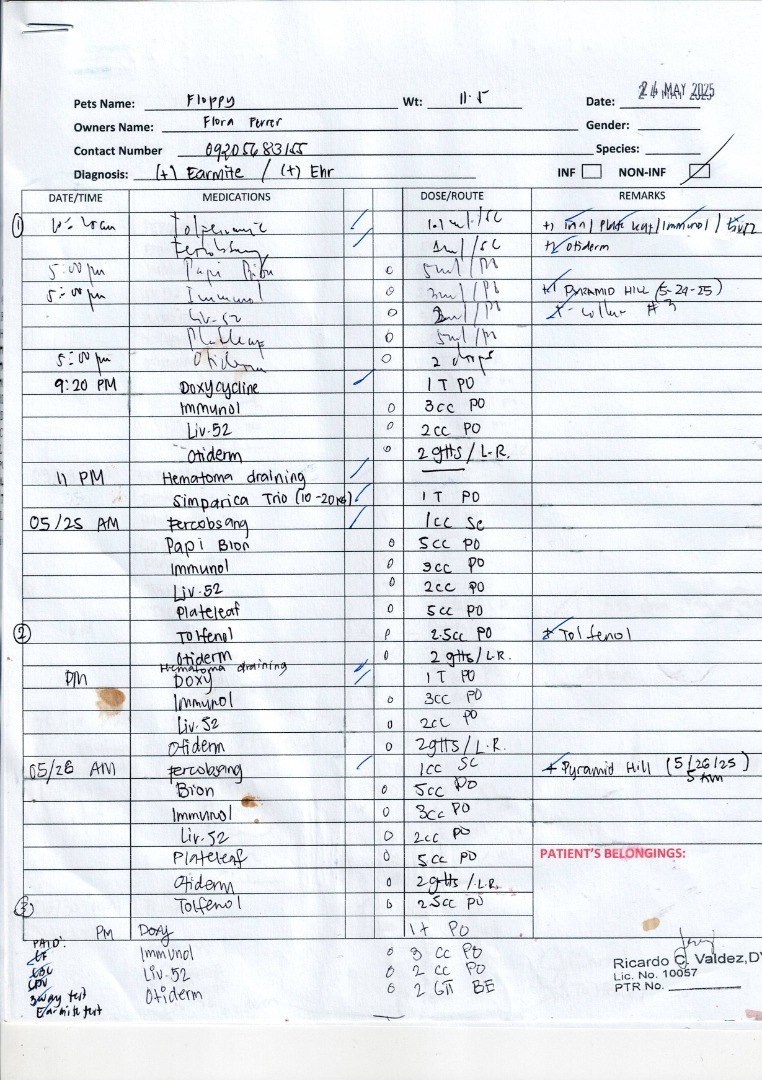 24 MAY 2025
Pets Name: Floppy Wt: 11.5 Date:
Owners Name: Flora Perrer Gender:
Contact Number 09205683155 Species:
Diagnosis: (+) Earmite / (+) Ehr INF NON-INF
DATE/TIME MEDICATIONS DOSE/ROUTE REMARKS
1 1.1 ml/SC
1ml/SC + Otiderm
5:00 pm Papi Bion 0 5ml/PO
5:00 pm Immunol 0 3ml/PO + PYRAMID HILL (5-24-25)
Liv-52 0 2ml/PO E-collar #3
Plateleaf 0 5ml/PO
5:00 pm Otiderm 0 2 drops
9:20 PM Doxycycline 1 T PO
Immunol 0 3cc PO
Liv.52 0 2cc PO
Otiderm 0 2 gtts / L.R.
11 PM Hematoma draining
Simparica Trio (10-20kg) 1 T PO
05/25 AM Fercobsang 1cc SC
Papi Bion 0 5cc PO
Immunol 0 3cc PO
Liv.52 0 2cc PO
Plateleaf 0 5cc PO
2 Tolfenol 0 2.5cc PO + Tolfenol
Otiderm 0 2 gtts/L.R.
Hematoma draining
PM Doxy 1 T PO
Immunol 0 3cc PO
Liv.52 0 2cc PO
Otiderm 0 2gtts/L.R.
05/26 AM Fercobsang 1cc SC + Pyramid Hill (5/26/25)
5 AM
Bion 0 5cc PO
Immunol 0 3cc PO
Liv.52 0 2cc PO
Plateleaf 0 5cc PO PATIENT'S BELONGINGS:
Otiderm 0 2gtts /L.R.
3 Tolfenol 0 2.5cc PO
PM Doxy 1t PO
PAID: Immunol 0 3 cc PO
Liv.52 0 2 cc PO
CBC
3way test Otiderm 0 2 GTT BE
Earmite test
Ricardo C. Valdez, DV
Lic. No. 10057
PTR No.